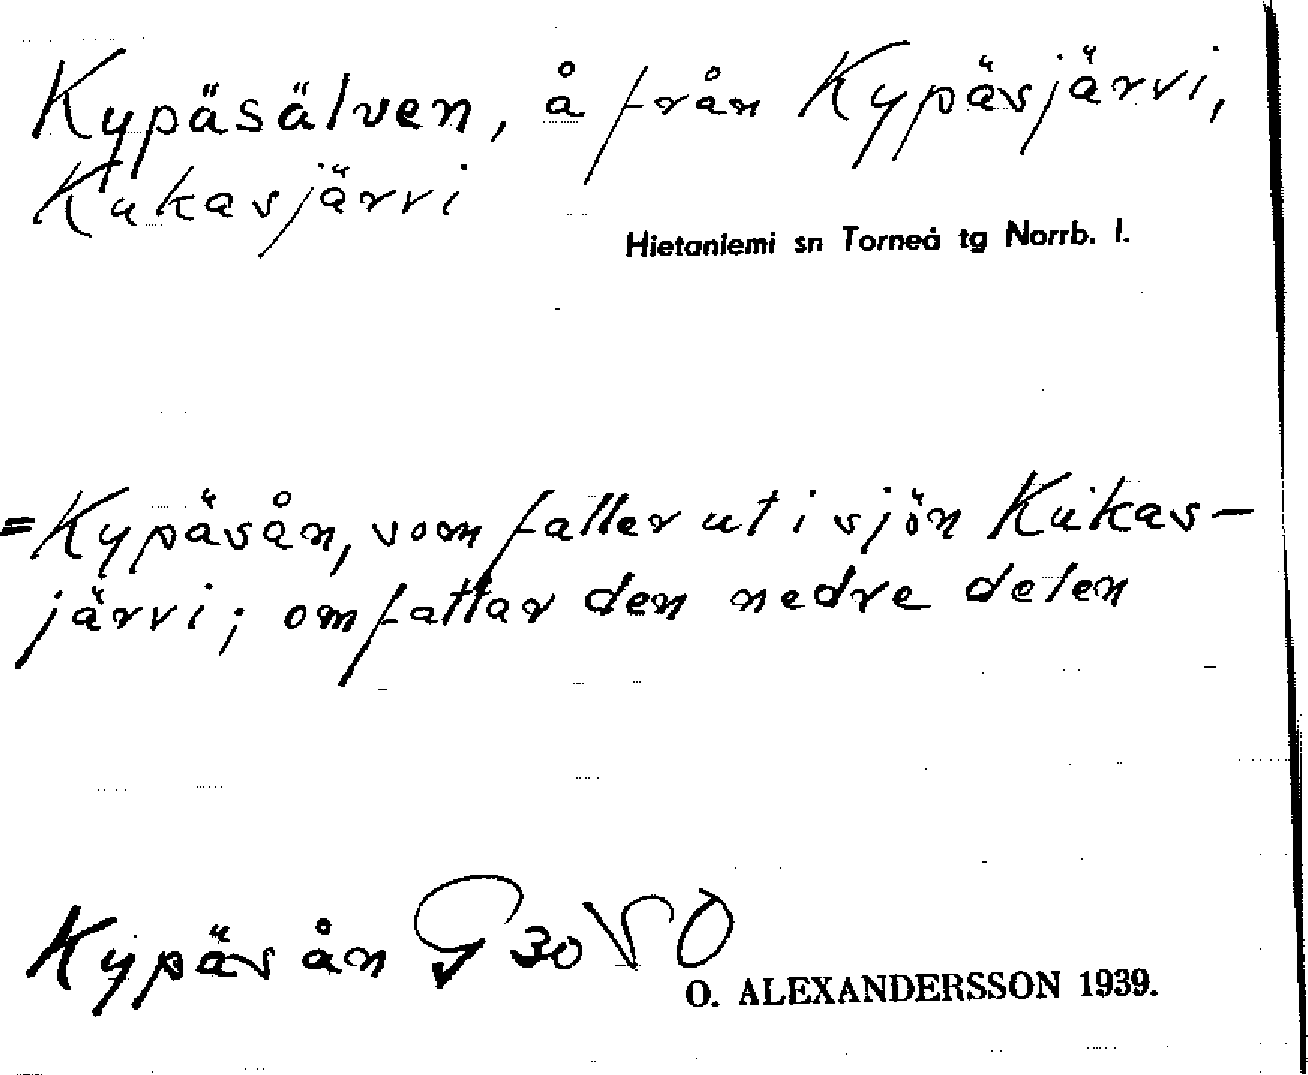 Kypäsälven, å från Kypäsjärvi,
Kukasjärvi
Hietaniemi sn Torneå tg Norrb. l.
=Kypäsån, som faller ut i sjön Kukas-
järvi; omfattar den nedre delen
Kypäs ån G 30 VO
O. ALEXANDERSSON 1939.